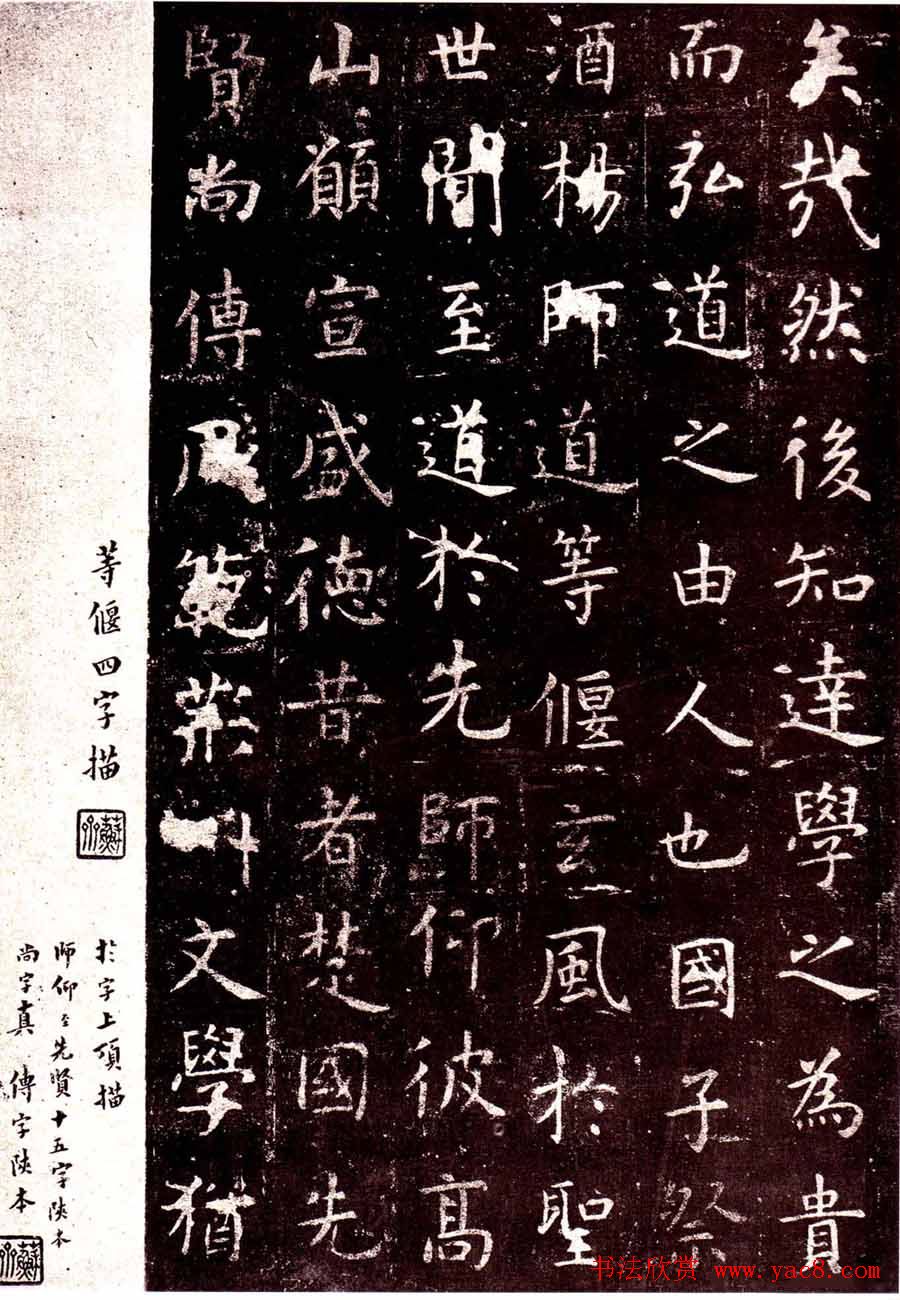 矣哉然後知達學之為貴
而弘道之由人也國子祭
酒楊師道等偃玄風於聖
世聞至道於先師仰彼高
山願宣盛德昔者楚國先
賢尚傳風範荊州文學猶
等偃四字描
於字上頂描
師仰至先賢十五字陝本
尚字真 傳字陝本
书法欣赏 www.yac8.com